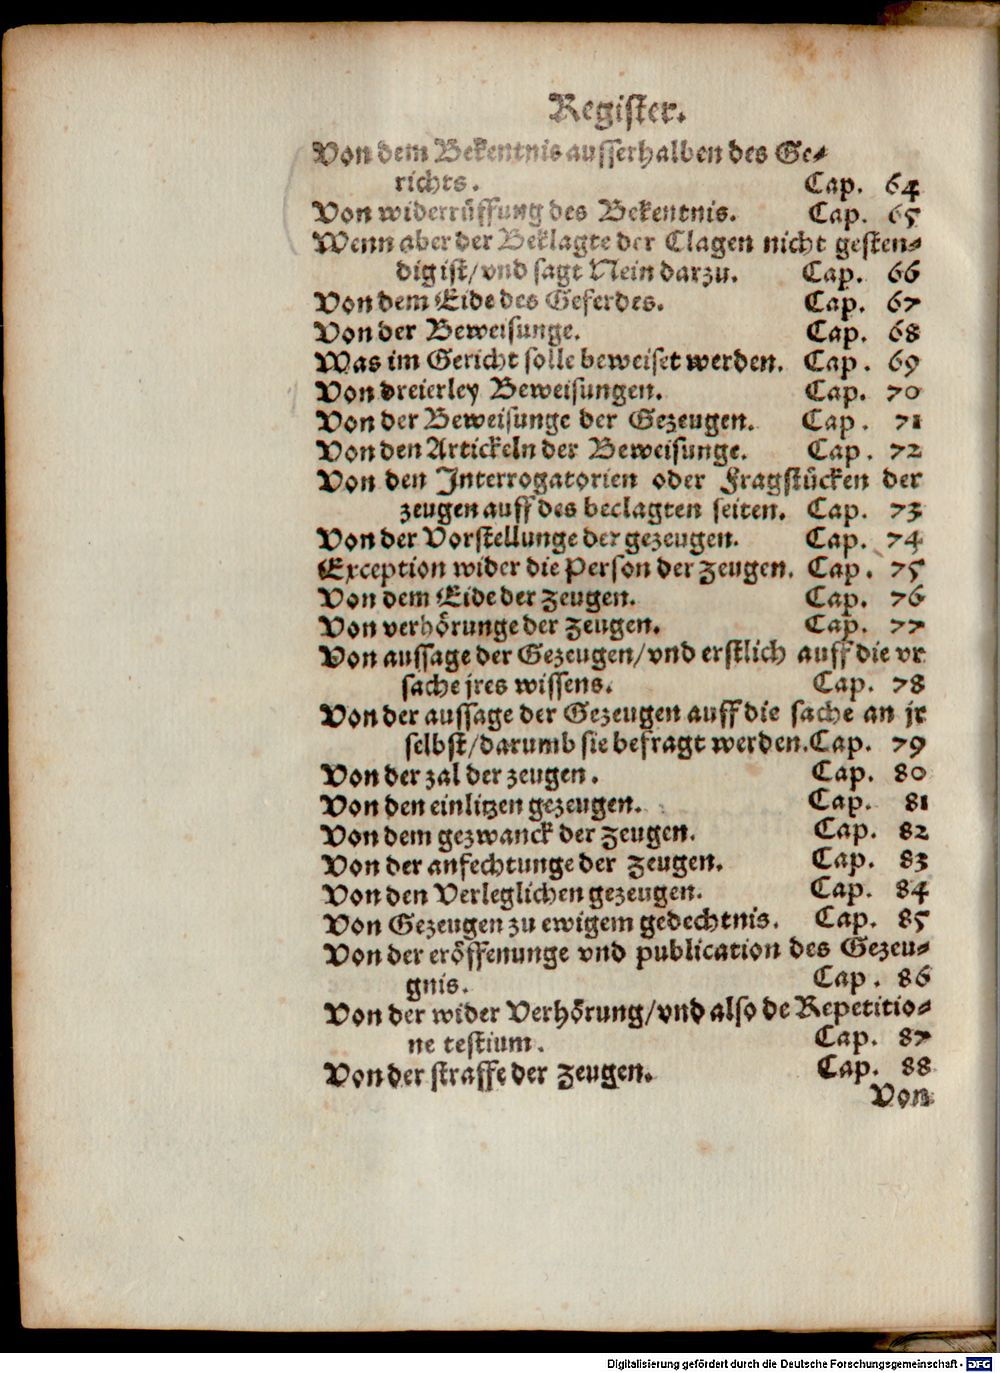 Register.
Von dem Bekentnis ausserhalben des Ge-
richts. Cap. 64
Von widerrüffung des Bekentnis. Cap. 65
Wenn aber der Beklagte der Clagen nicht gesten-
dig ist/vnd sagt Nein darzu. Cap. 66
Von dem Eide des Geferdes. Cap. 67
Von der Beweisunge. Cap. 68
Was im Gericht solle beweiset werden. Cap. 69
Von dreierley Beweisungen. Cap. 70
Von der Beweisunge der Gezeugen. Cap. 71
Von den Artickeln der Beweisunge. Cap. 72
Von den Interrogatorien oder Fragstücken der
zeugen auff des beclagten seiten. Cap. 73
Von der Vorstellunge der gezeugen. Cap. 74
Exception wider die Person der Zeugen. Cap. 75
Von dem Eide der Zeugen. Cap. 76
Von verhörunge der Zeugen. Cap. 77
Von aussage der Gezeugen/vnd erstlich auff die vr
sache jres wissens. Cap. 78
Von der aussage der Gezeugen auff die sache an jr
selbst/darumb sie befragt werden. Cap. 79
Von der zal der zeugen. Cap. 80
Von den einlitzen gezeugen. Cap. 81
Von dem gezwanck der Zeugen. Cap. 82
Von der anfechtunge der Zeugen. Cap. 83
Von den Verleglichen gezeugen. Cap. 84
Von Gezeugen zu ewigem gedechtnis. Cap. 85
Von der eröffenunge vnd publication des Gezeu-
gnis. Cap. 86
Von der wider Verhörung/vnd also de Repetitio-
ne testium. Cap. 87
Von der straffe der Zeugen. Cap. 88
Von
Digitalisierung gefördert durch die Deutsche Forschungsgemeinschaft - DFG